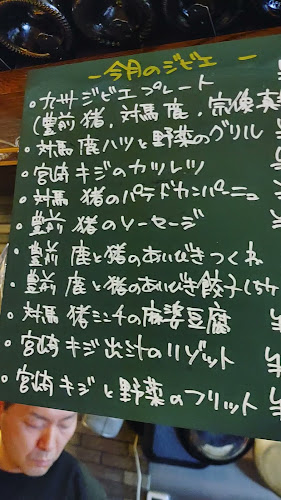 -今月のジビエ-
・九州ジビエプレート
(豊前 猪, 対馬 鹿, 宗像 真
・対馬 鹿ハツと野菜のグリル
・宮崎 キジのカツレツ
・対馬 猪のパテドカンパーニュ
・豊前 猪のソーセージ
・豊前 鹿と猪のあいびきつくね
・豊前 鹿と猪のあいびき餃子(5ケ
・対馬 猪ミンチの麻婆豆腐
・宮崎 キジ出汁のリゾット
・宮崎 キジと野菜のフリット